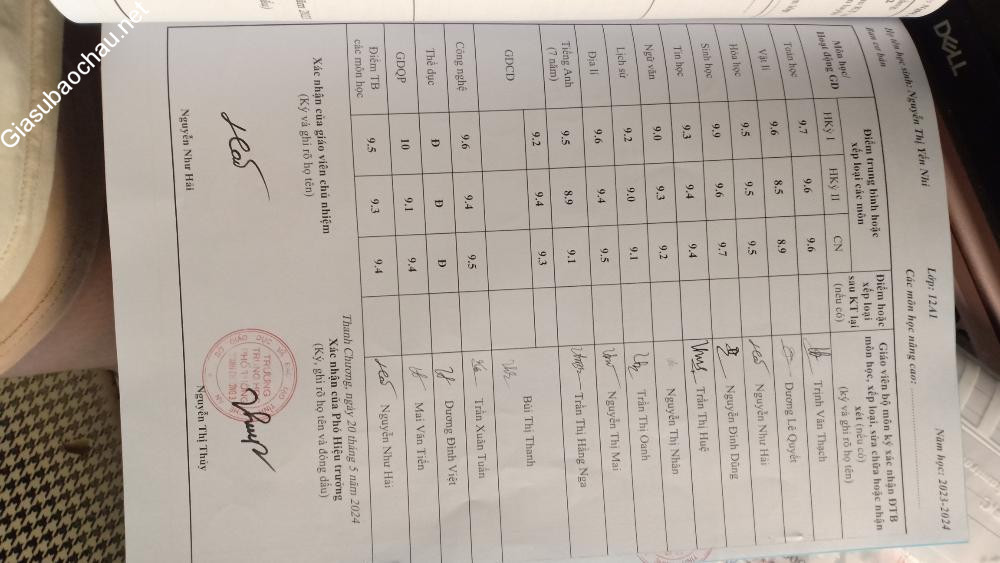 Họ tên học sinh: Nguyễn Thị Yến Nhi Lớp: 12A1 Năm học: 2023-2024
Ban cơ bản Các môn học nâng cao:
Môn học/ Hoạt động GD Điểm trung bình hoặc xếp loại các môn Điểm hoặc xếp loại sau KT lại (nếu có) Giáo viên bộ môn ký xác nhận ĐTB môn học, xếp loại, sửa chữa hoặc nhận xét (nếu có) (ký và ghi rõ họ tên)
HKỳ I HKỳ II CN
Toán học 9.7 9.6 9.6 Trịnh Văn Thạch
Vật lí 9.6 8.5 8.9 Dương Lê Quyết
Hóa học 9.5 9.5 9.5 Nguyễn Như Hải
Sinh học 9.9 9.6 9.7 Nguyễn Đình Dũng
Tin học 9.3 9.4 9.4 Trần Thị Huệ
Ngữ văn 9.0 9.3 9.2 Nguyễn Thị Nhân
Lịch sử 9.2 9.0 9.1 Trần Thị Oanh
Địa lí 9.6 9.4 9.5 Nguyễn Thị Mai
Tiếng Anh (7 năm) 9.5 8.9 9.1 Trần Thị Hằng Nga
GDCD 9.2 9.4 9.3 Bùi Thị Thanh
Công nghệ 9.6 9.4 9.5 Trần Xuân Tuấn
Thể dục Đ Đ Đ Dương Đình Việt
GDQP 10 9.1 9.4 Mai Văn Tiến
Điểm TB các môn học 9.5 9.3 9.4 Nguyễn Như Hải
Thanh Chương, ngày 20 tháng 5 năm 2024
Xác nhận của giáo viên chủ nhiệm
(Ký và ghi rõ họ tên)
Nguyễn Như Hải
Xác nhận của Phó Hiệu trưởng
(Ký, ghi rõ họ tên và đóng dấu)
TRƯỜNG
TRUNG HỌC
PHỔ THÔNG
Nguyễn Thị Thủy
DELL
Giasubaochau.net